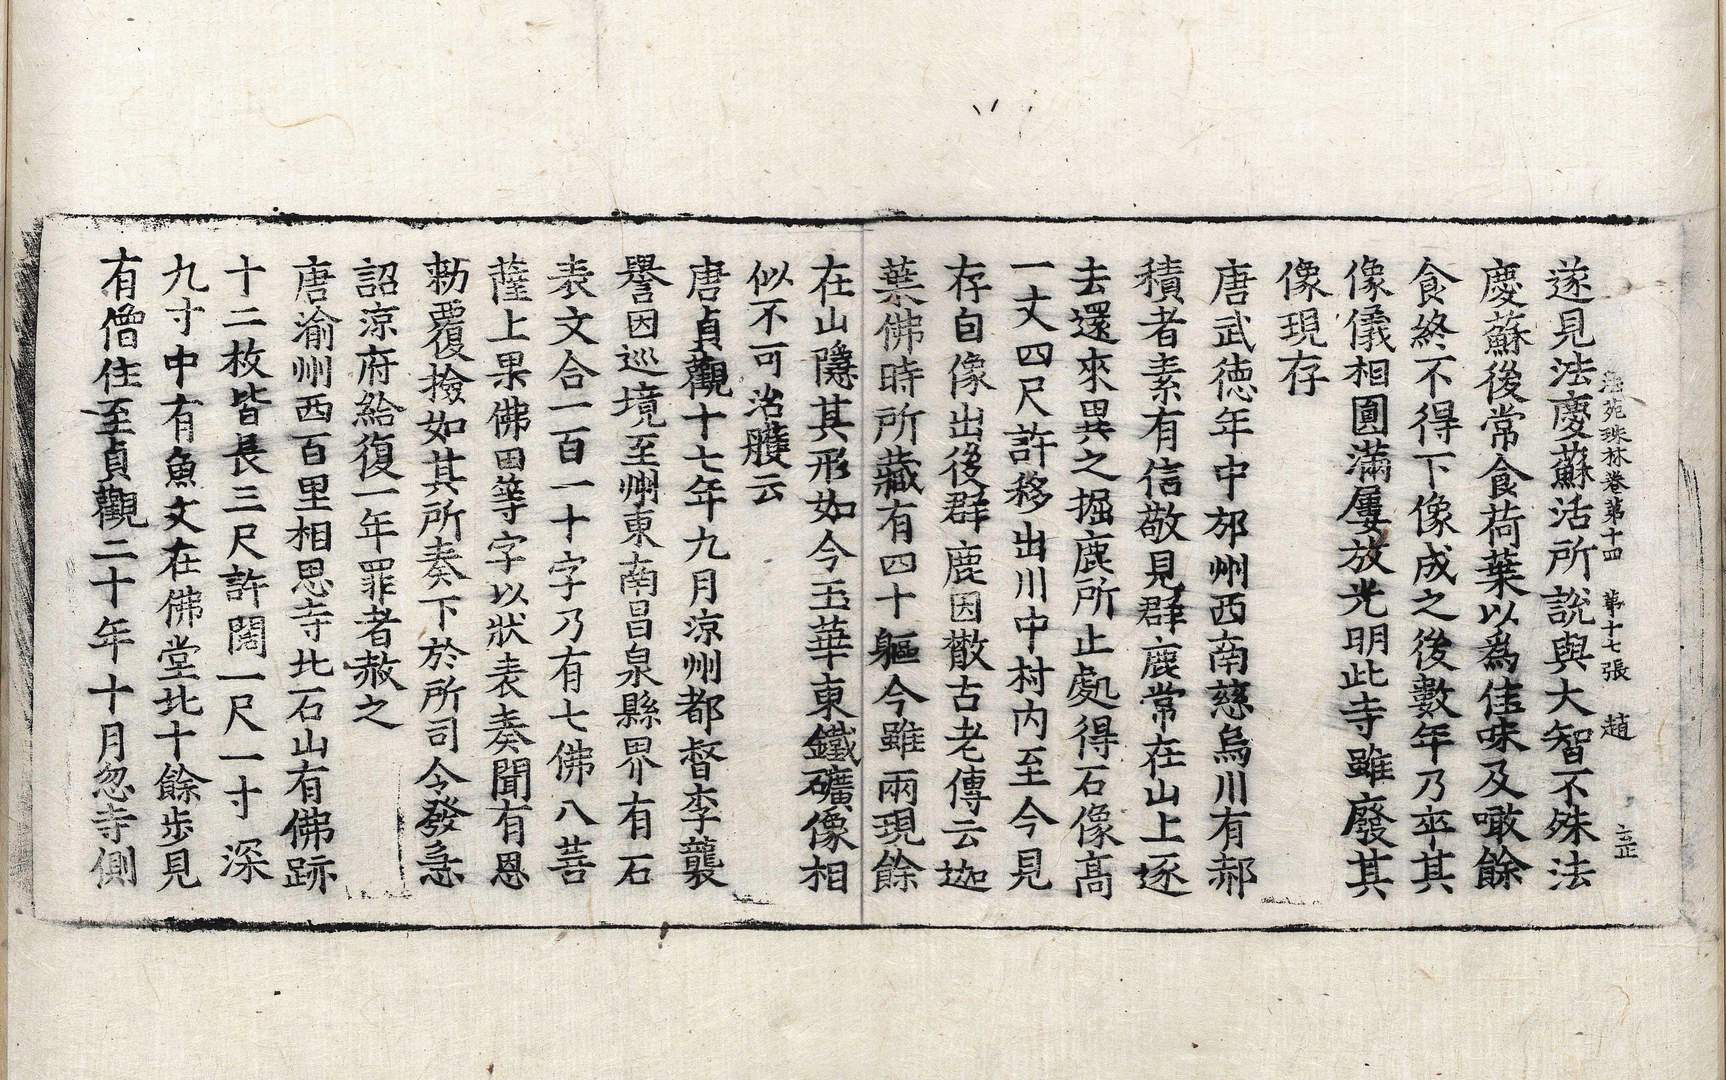 法苑珠林卷第十四　第十七張　趙　㐧正
遂見法慶蘇活所說與大智不殊法
慶蘇後常食荷葉以爲佳味及噉餘
食終不得下像成之後數年乃卒其
像儀相圓滿屢放光明此寺雖廢其
像現存
唐武德年中邡州西南慈烏川有郝
積者素有信敬見群鹿常在山上逐
去還來異之掘鹿所止處得石像高
一丈四尺許移出川中村內至今見
存自像出後群鹿因散古老傳云迦
葉佛時所藏有四十軀今雖兩現餘
在山隱其形如今玉華東鐵礦像相
似不可治護云
唐貞觀十七年九月涼州都督李襲
譽因巡境至州東南昌泉縣界有石
表文合一百一十字乃有七佛八菩
薩上果佛田等字以狀表奏聞有恩
勑覆撿如其所奏下於所司令發急
詔涼府給復一年罪者赦之
唐渝州西百里相思寺北石山有佛跡
十二枚皆長三尺許闊一尺一寸深
九寸中有魚文在佛堂北十餘步見
有僧住至貞觀二十年十月忽寺側